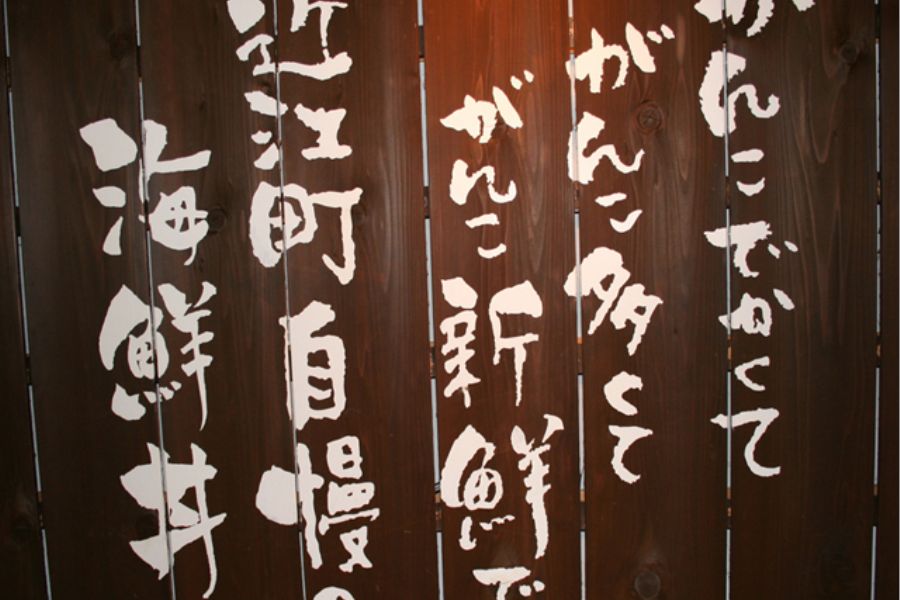 がんこでかくて
がんこ多くて
がんこ新鮮で
近江町自慢の
海鮮丼